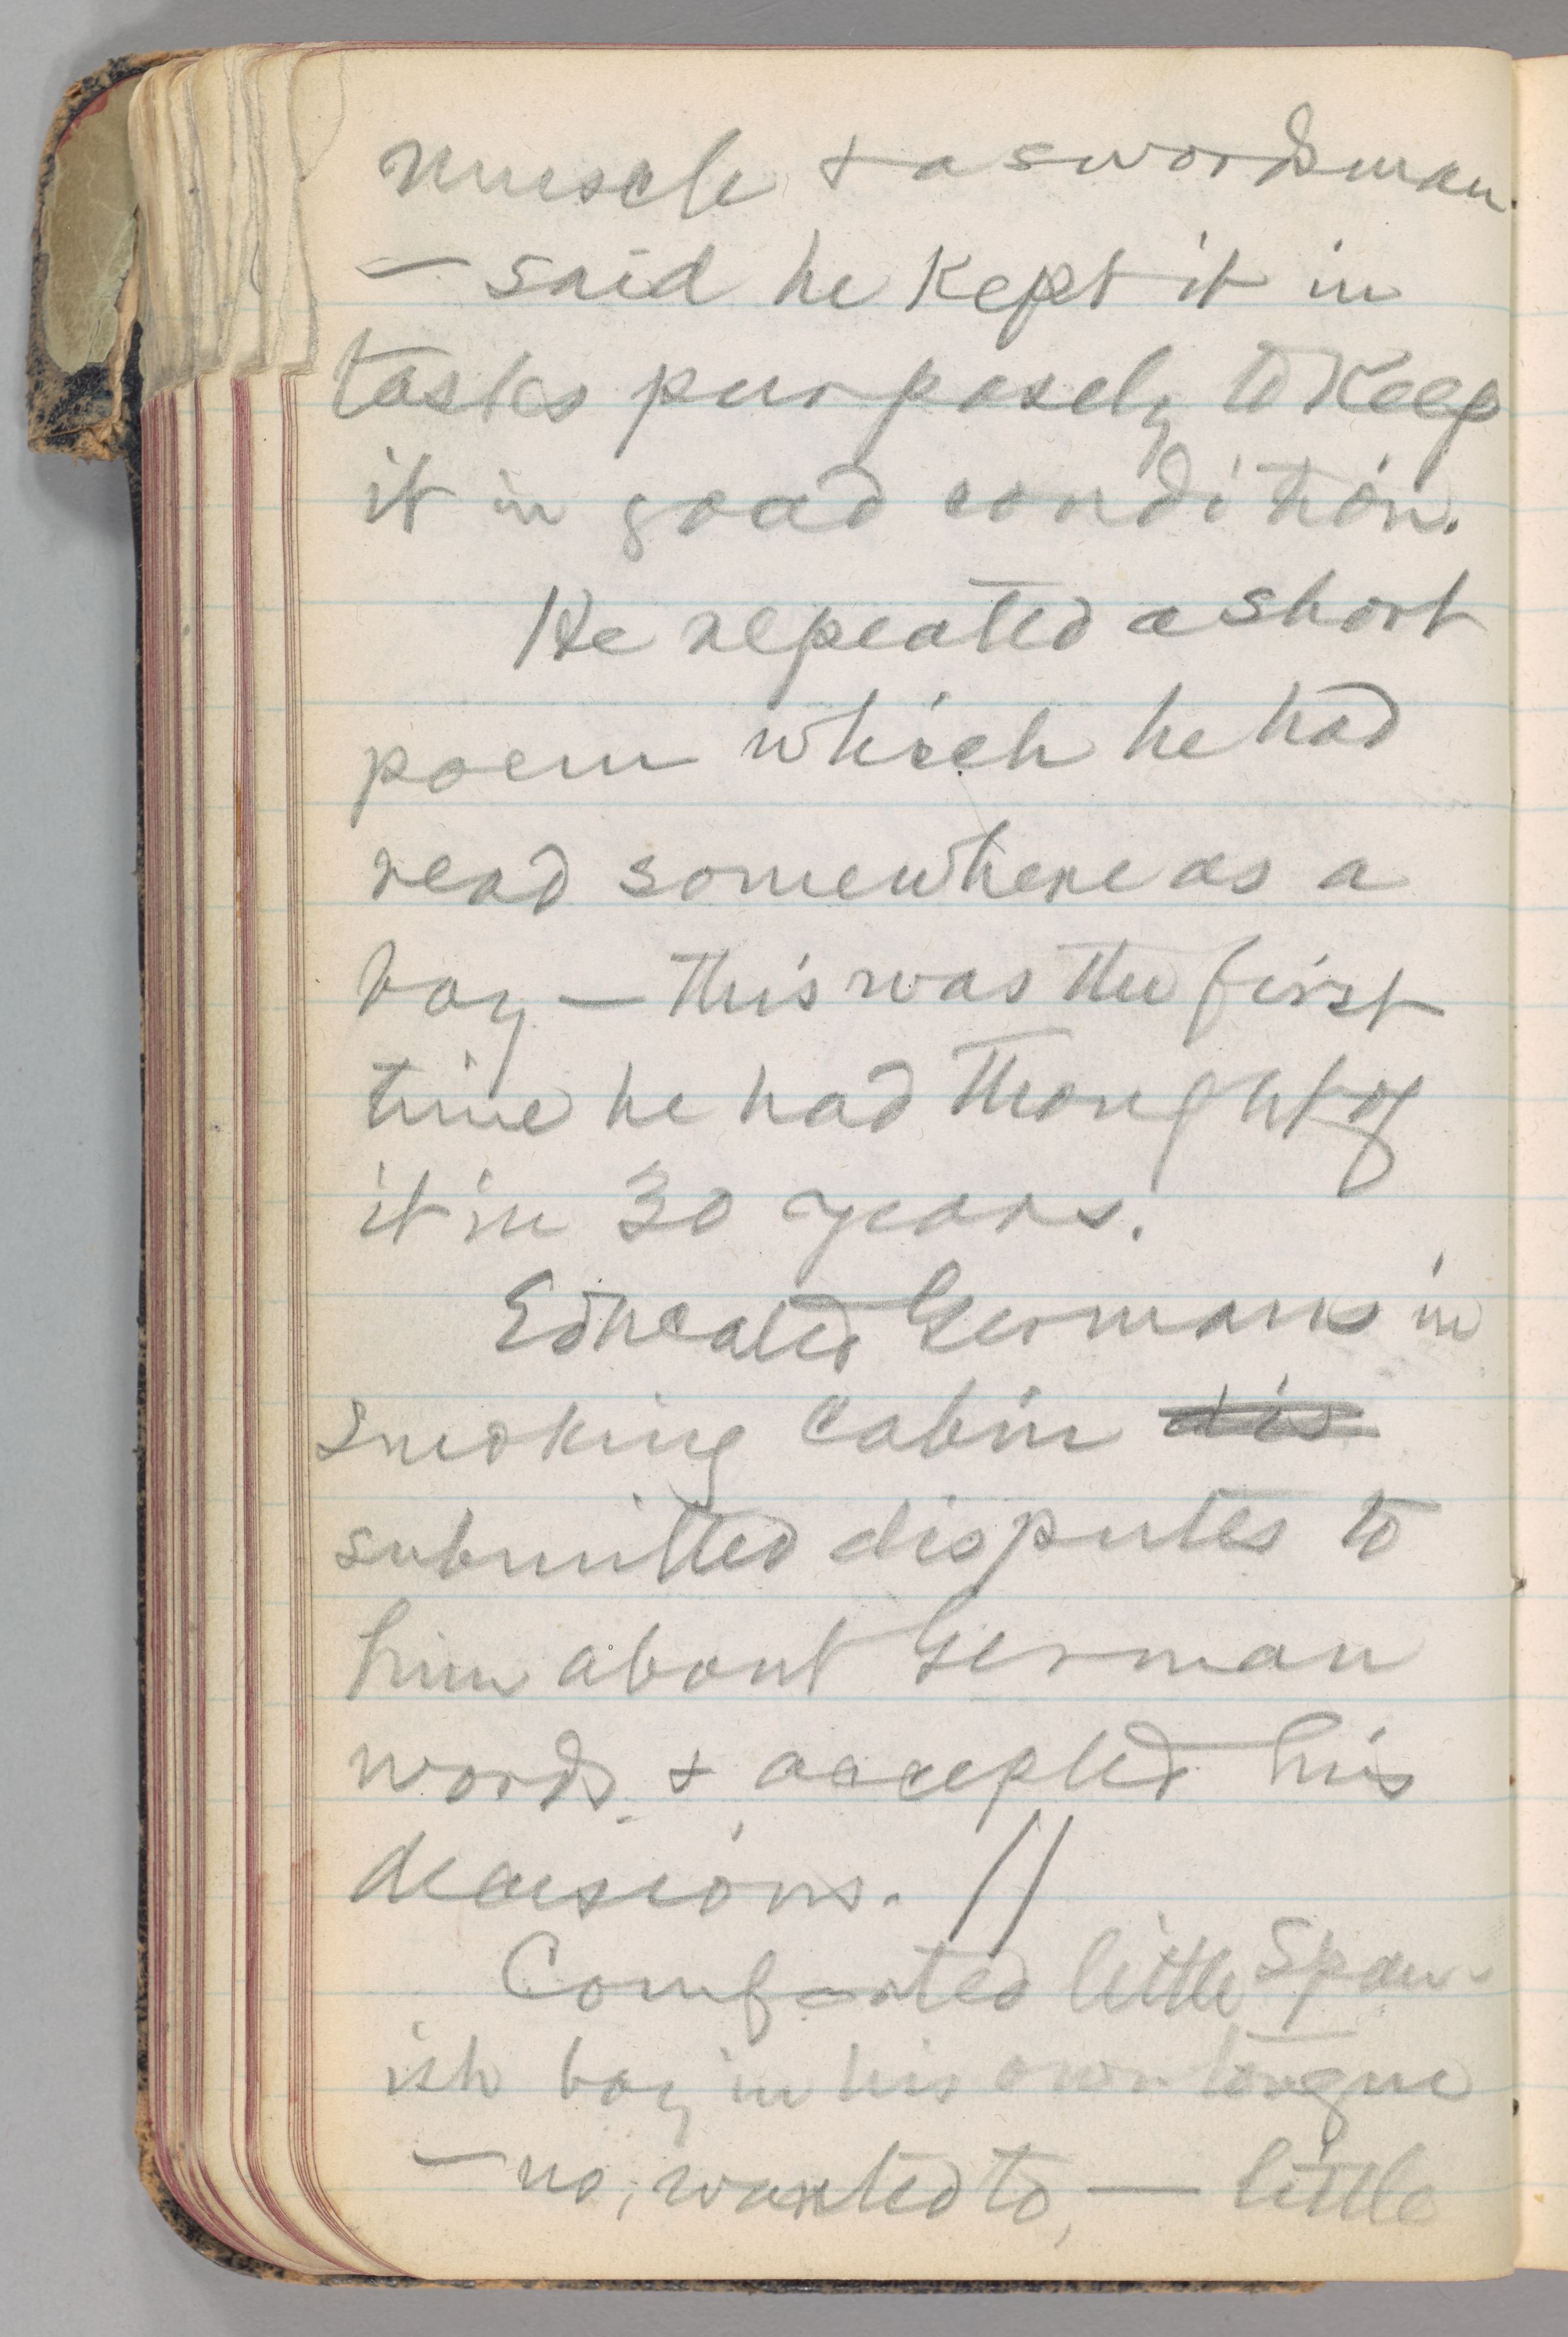 muscle & a swordsman.
— said he kept it in
tasks purposely to keep
it in good condition.
He repeated a short
poem which he had
read somewhere as a
boy — this was the first
time he had thought of
it in 30 years.
Educated Germans in
smoking cabin dis
submitted disputes to
him about German
words & accepted his
decisions. //
Comforted little Span-
ish boy in his own tongue
— no, wanted to, — little